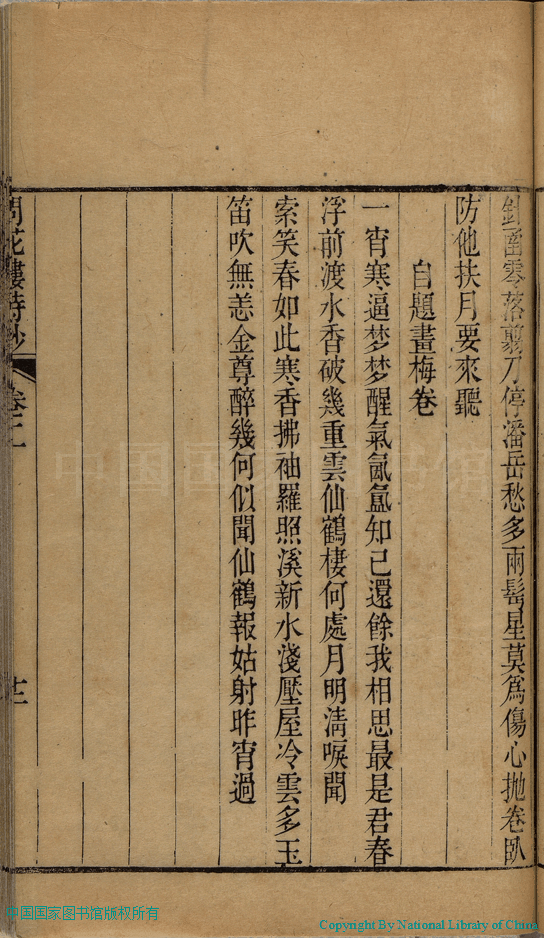 針畱零落剪刀停潘岳愁多兩鬂星莫為傷心抛卷臥
防他扶月要來聽
自題畫梅卷
一宵寒逼梦梦醒氣氤氳知己還餘我相思最是君春
浮前渡水香破幾重雲仙鶴棲何處月明淸唳聞
索笑春如此寒香拂袖羅照溪新水淺壓屋冷雲多玉
笛吹無恙金尊醉幾何似聞仙鶴報姑射昨宵過
問花樓詩鈔
卷二
十二
中国国家图书馆
中国国家图书馆版权所有
Copyright By National Library of China